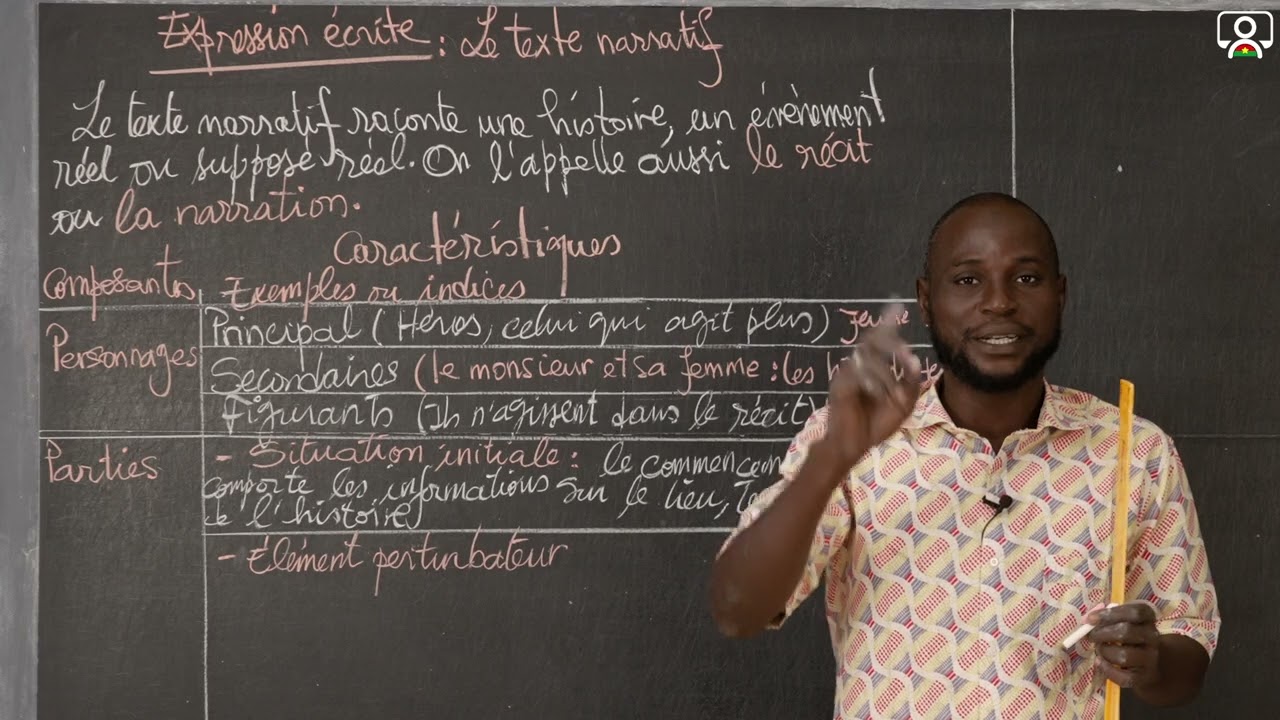 Expression écrite : Le texte narratif
Le texte narratif raconte une histoire, un événement
réel ou supposé réel. On l'appelle aussi le récit
ou la narration.
Caractéristiques
Composants Exemples ou indices
Personnages
Principal (Héros, celui qui agit plus)
Secondaires (le monsieur et sa femme : les
Figurants (Ils n'agissent dans le récit)
Parties
- Situation initiale : le commencem
comporte les informations sur le lieu,
de l'histoire
- Elément perturbateur